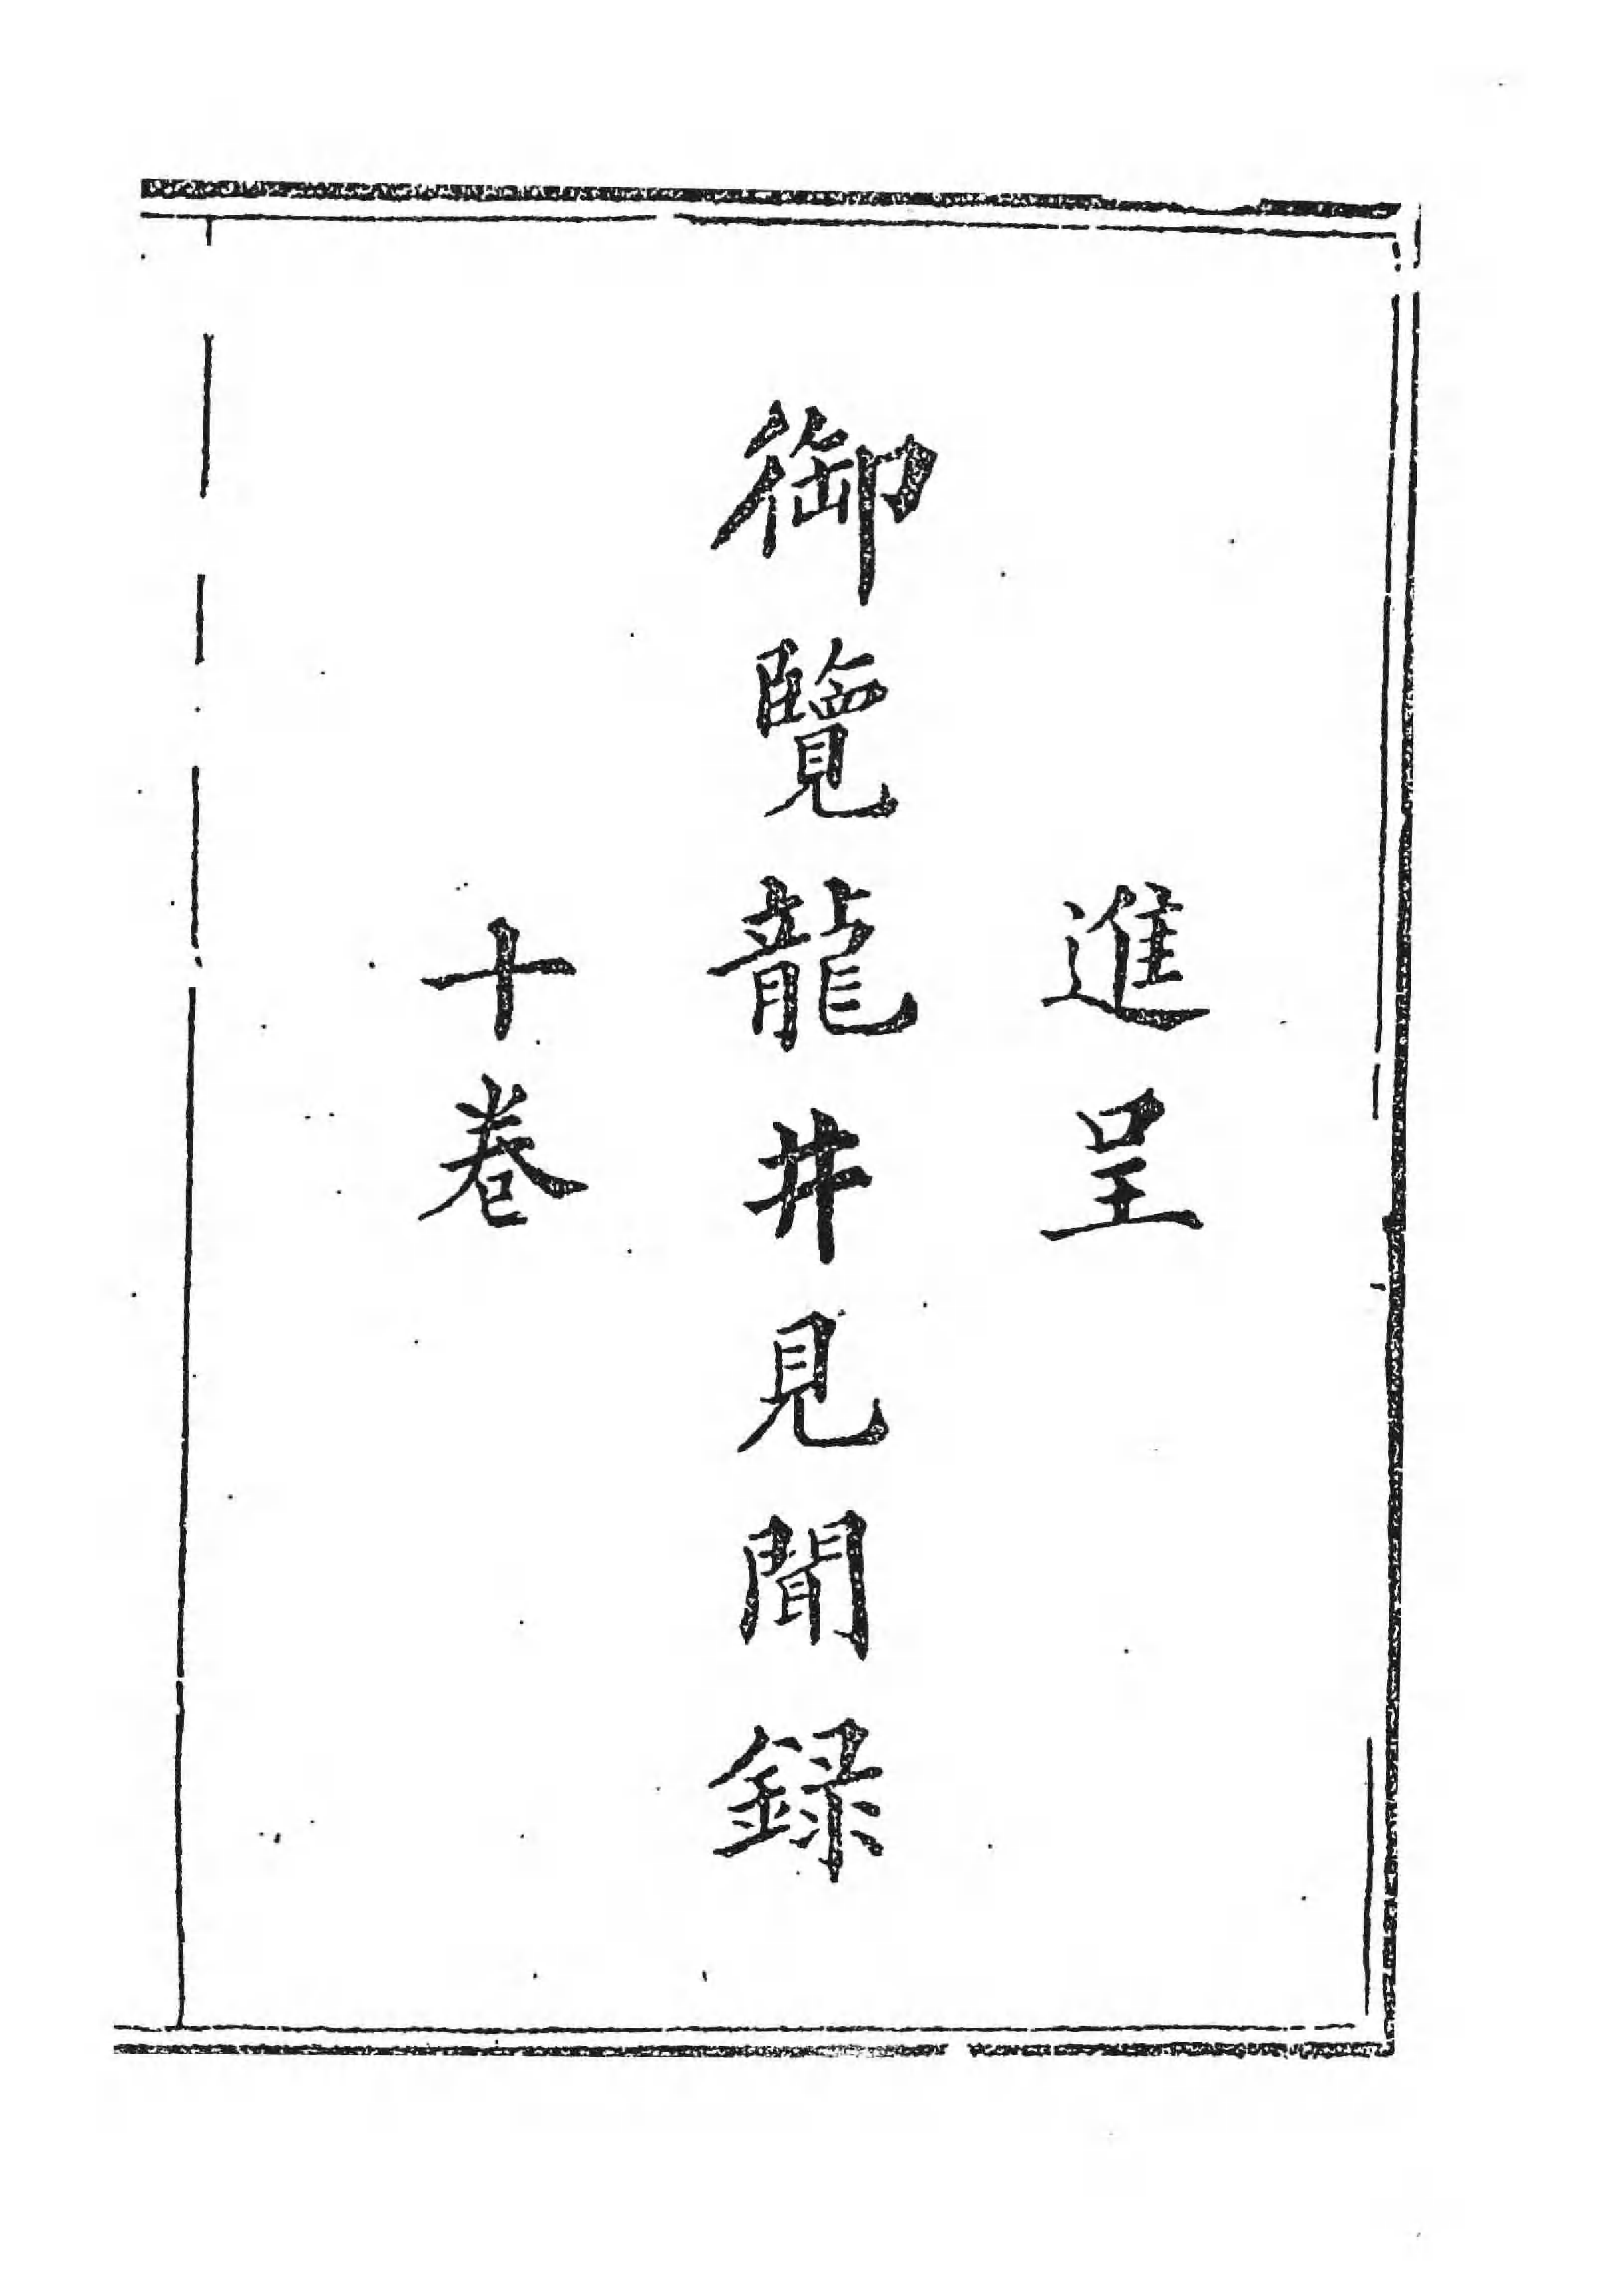 進呈
御覽龍井見聞録
十卷